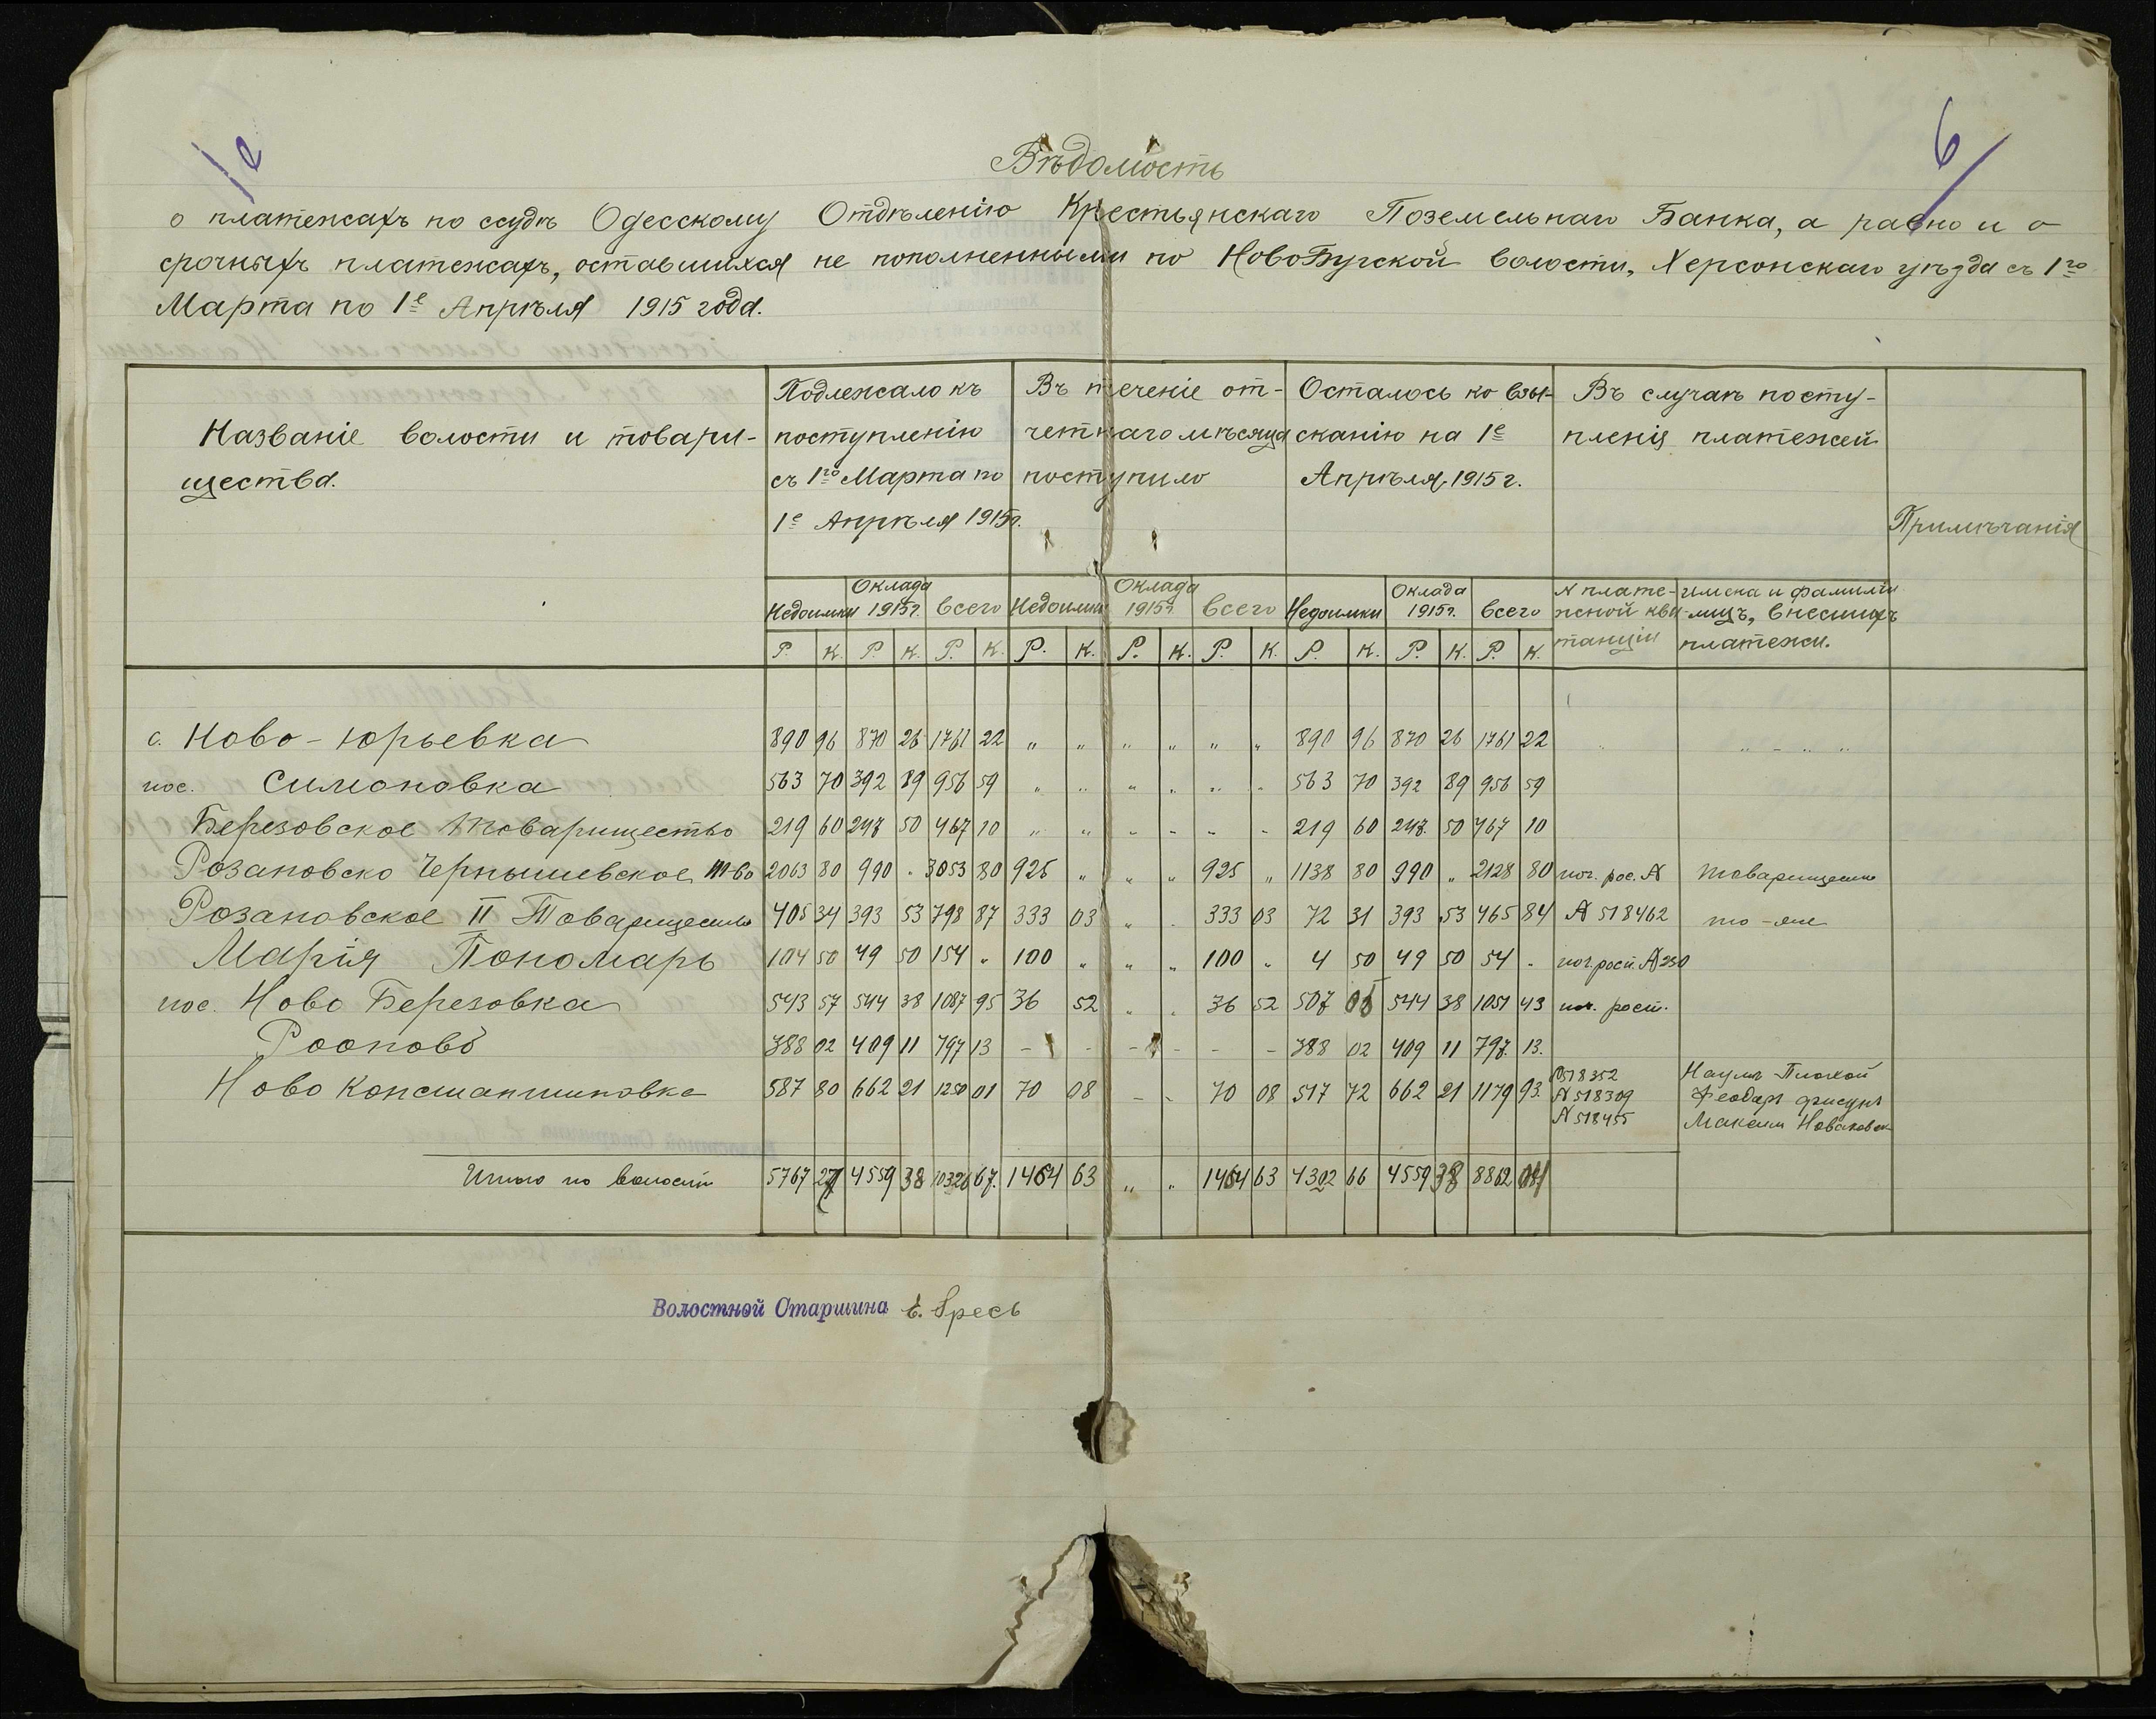 Вѣдомость
о платежахъ по ссудѣ Одесскому Отдѣленію Крестьянскаго Поземельнаго Банка, а равно и о
срочныхъ платежахъ, оставшихся не пополненными по НовоБугской волости, Херсонскаго уѣзда съ 1го
Марта по 1е Апрѣля 1915 года.
6
Названіе волости и товари-
щества.
Подлежало къ
поступленію
съ 1го Марта по
1е Апрѣля 1915г.
Въ теченіе от-
четнаго мѣсяца
поступило
Осталось ко взы-
сканію на 1е
Апрѣля 1915 г.
Въ случаѣ посту-
пленія платежей
Примѣчанія
Недоимки Оклада 1915г. всего Недоимки Оклада 1915г. всего Недоимки Оклада 1915г. всего
N плате-
жной кви-
танціи
имена и фамиліи
лицъ, внесшихъ
платежи.
Р. К. Р. К. Р. К. Р. К. Р. К. Р. К. Р. К. Р. К. Р. К.
с. Ново-Юрьевка 890 96 870 26 1761 22 " " " " " " 890 96 870 26 1761 22
пос. Симоновка 563 70 392 89 956 59 " " " " " " 563 70 392 89 956 59
Березовское Товарищество 219 60 247 50 467 10 " " " " " " 219 60 247 50 467 10
Розановско Чернышевское т-во 2063 80 990 " 3053 80 925 " " " 925 " 1138 80 990 " 2128 80 N Товарищество
Розановское II Товарищество 405 34 393 53 798 87 333 03 " " 333 03 72 31 393 53 465 84 N 518462 то-же
Марія Пономарь 104 50 49 50 154 " 100 " " " 100 " 4 50 49 50 54 "
пос. Ново Березовка 543 57 544 38 1087 95 36 52 " " 36 52 507 05 544 38 1051 43
388 02 409 11 797 13 - - - - - - 388 02 409 11 797 13.
Ново Константиновка 587 80 662 21 1250 01 70 08 - - 70 08 517 72 662 21 1179 93.
N518352 Наумъ Плохой
N 518309 Феодоръ
N 518455 Максим
Итого по волости 5767 27 4559 38 10326 67. 1464 63 " " 1464 63 4302 66 4559 38 8862 04
Волостной Старшина Е.